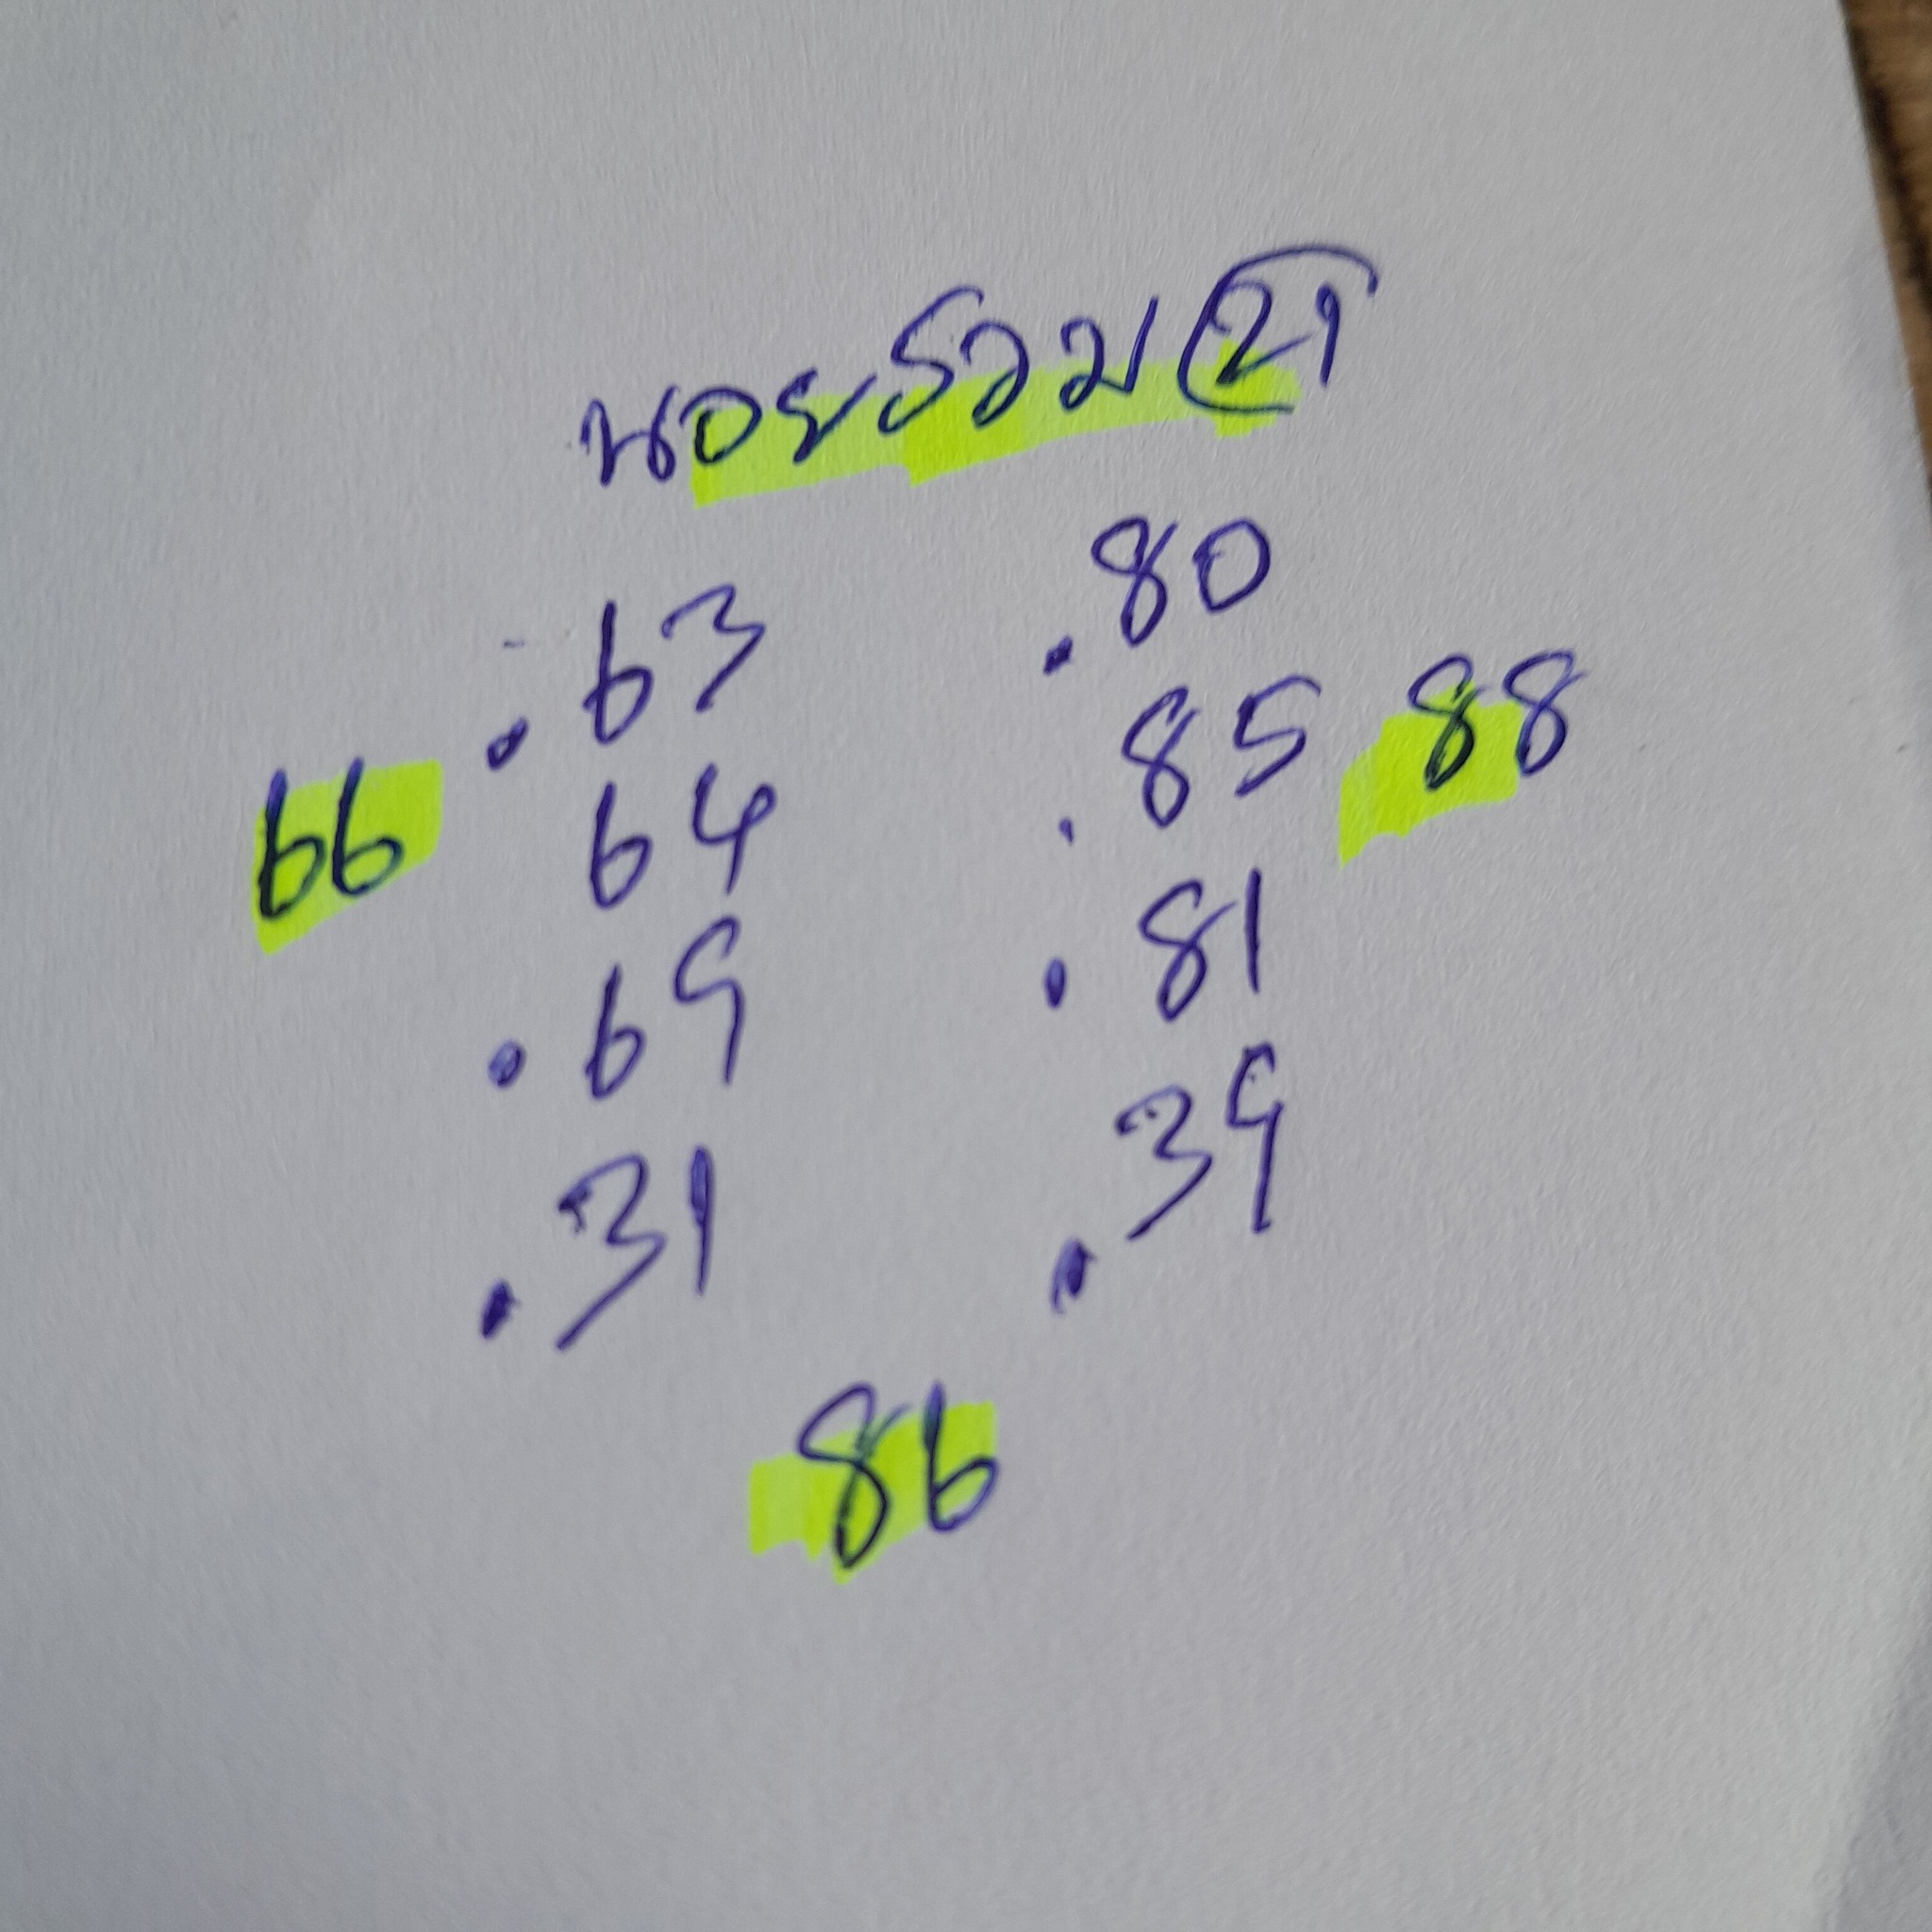 หอยรวม 21
.63 .80
66 64 .85 88
.69 .81
.31 .39
86